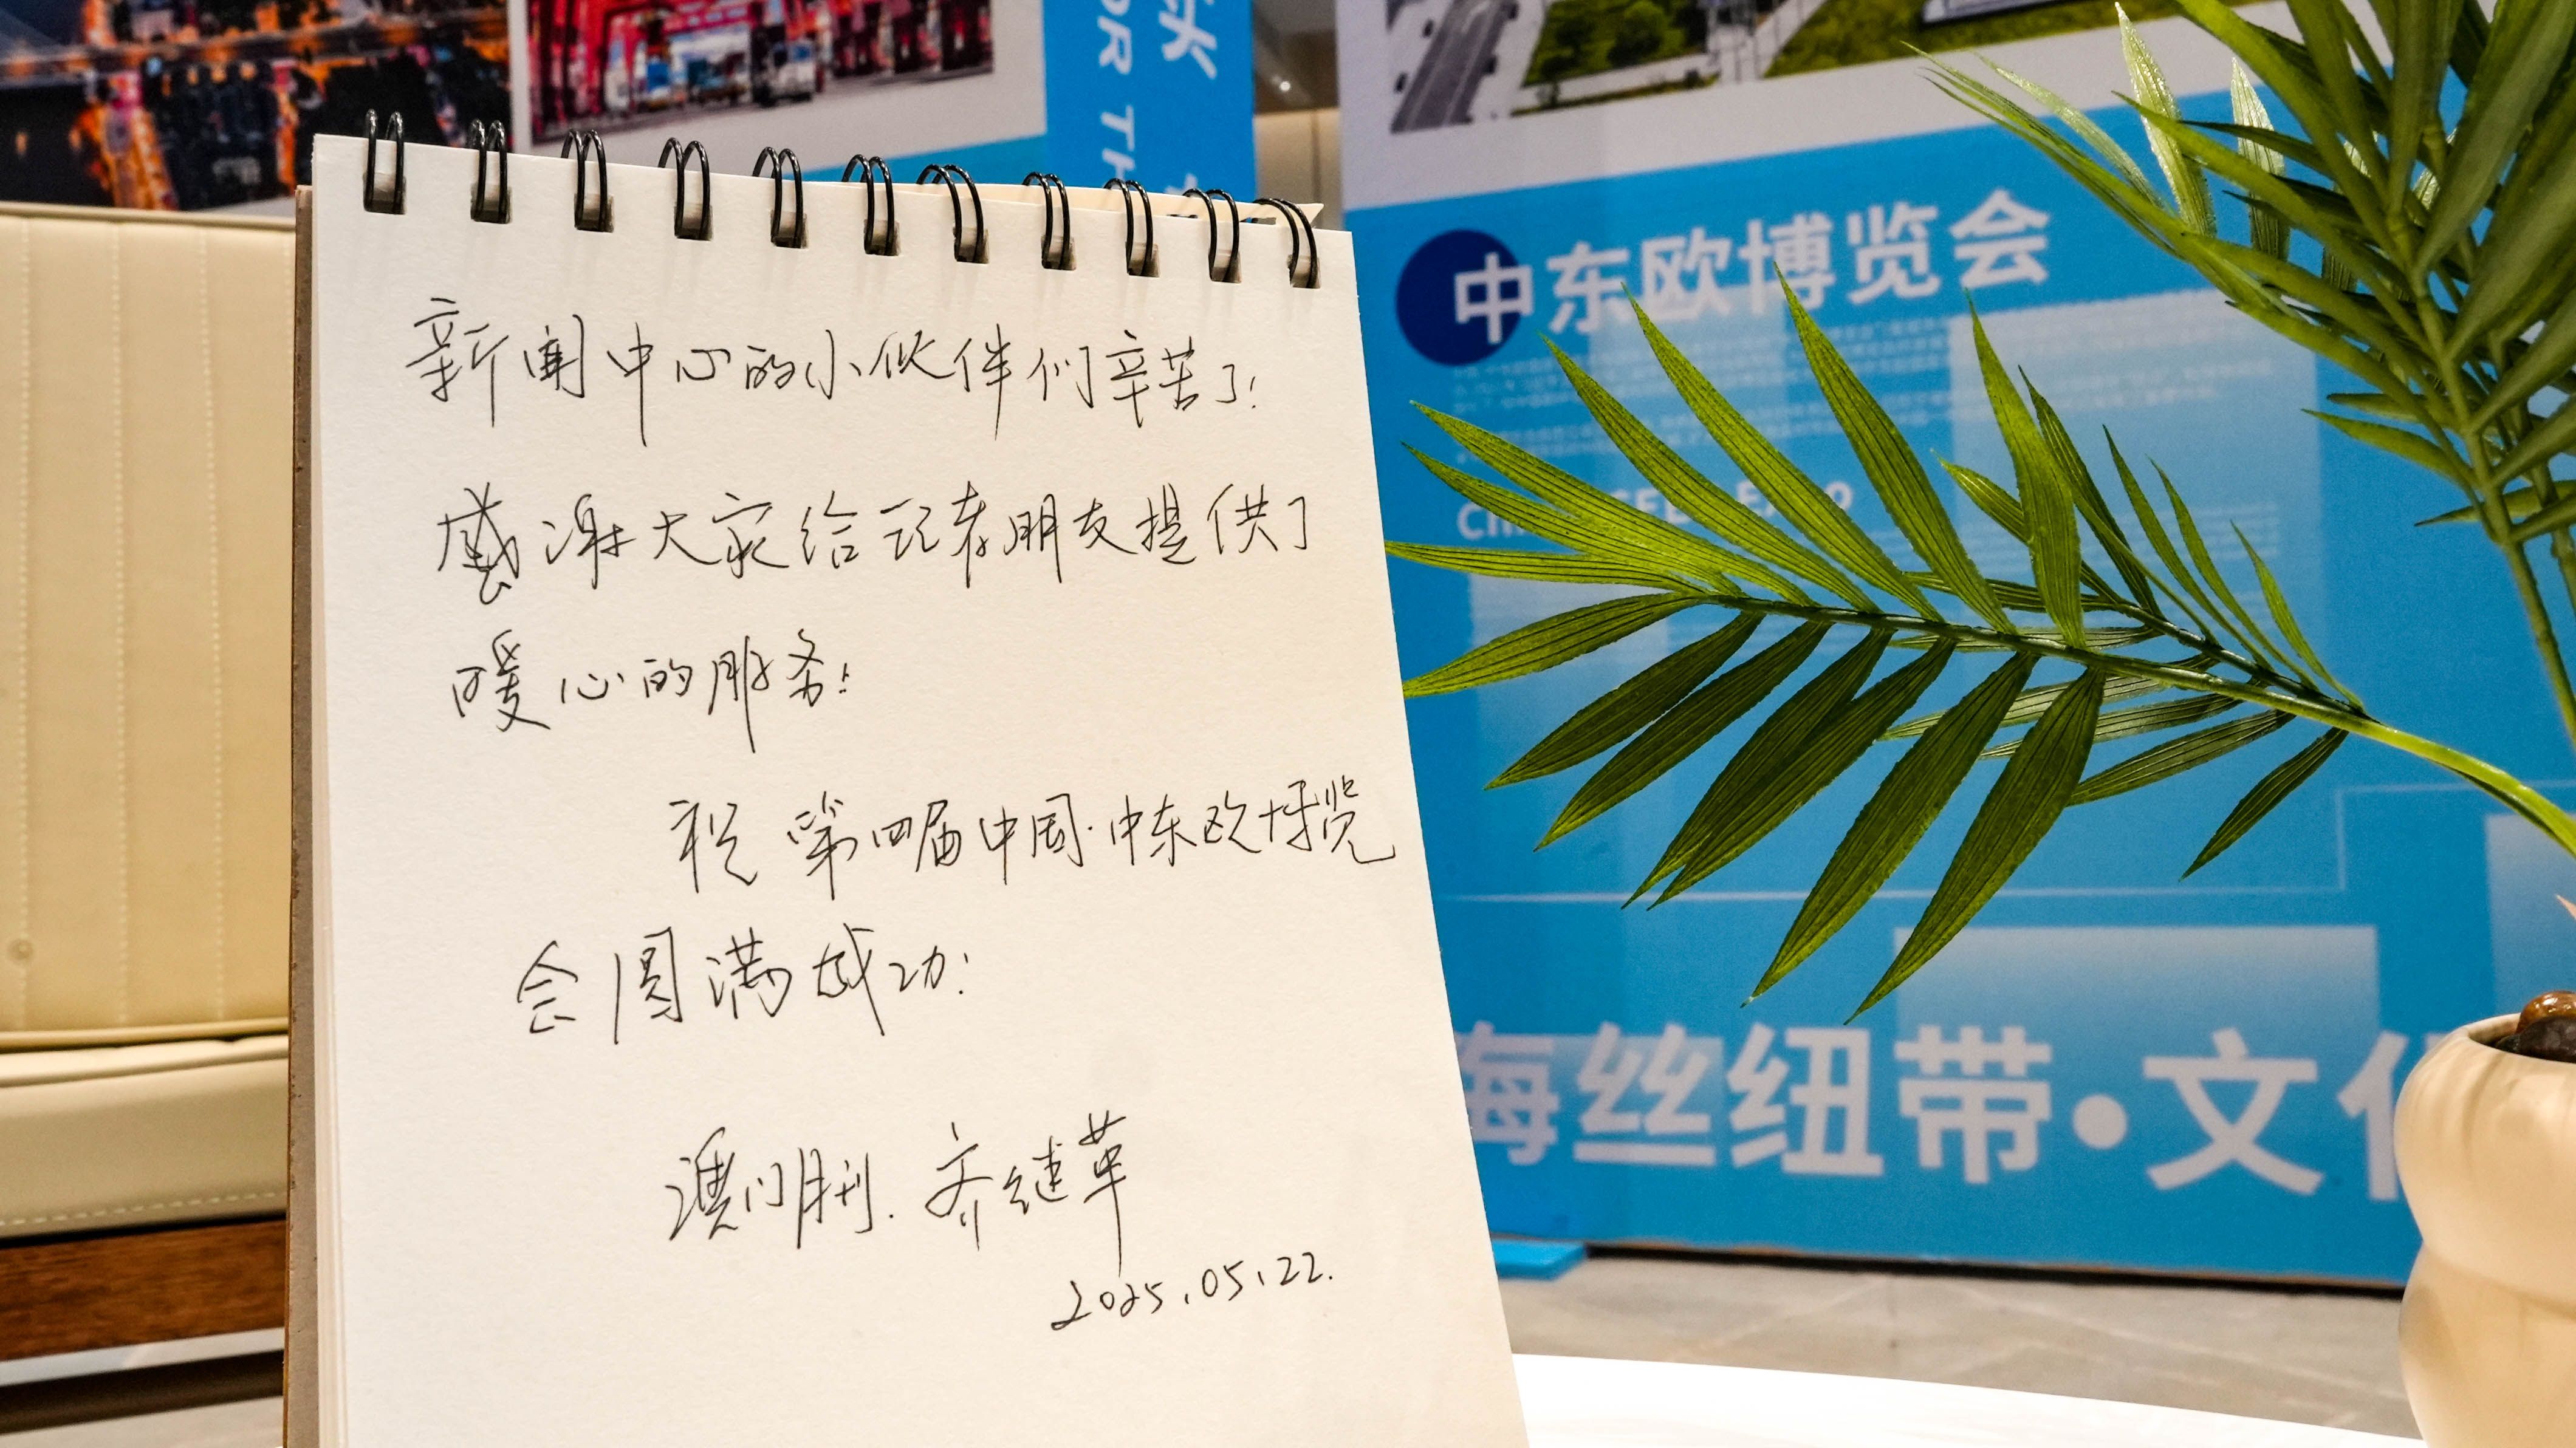 新闻中心的小伙伴们辛苦了!
感谢大家给记者朋友提供了
暖心的服务!
祝第四届中国·中东欧博览
会圆满成功!
澳门月刊.齐继革
2025.05.22.
OR TH
中东欧博览会
海丝纽带·文